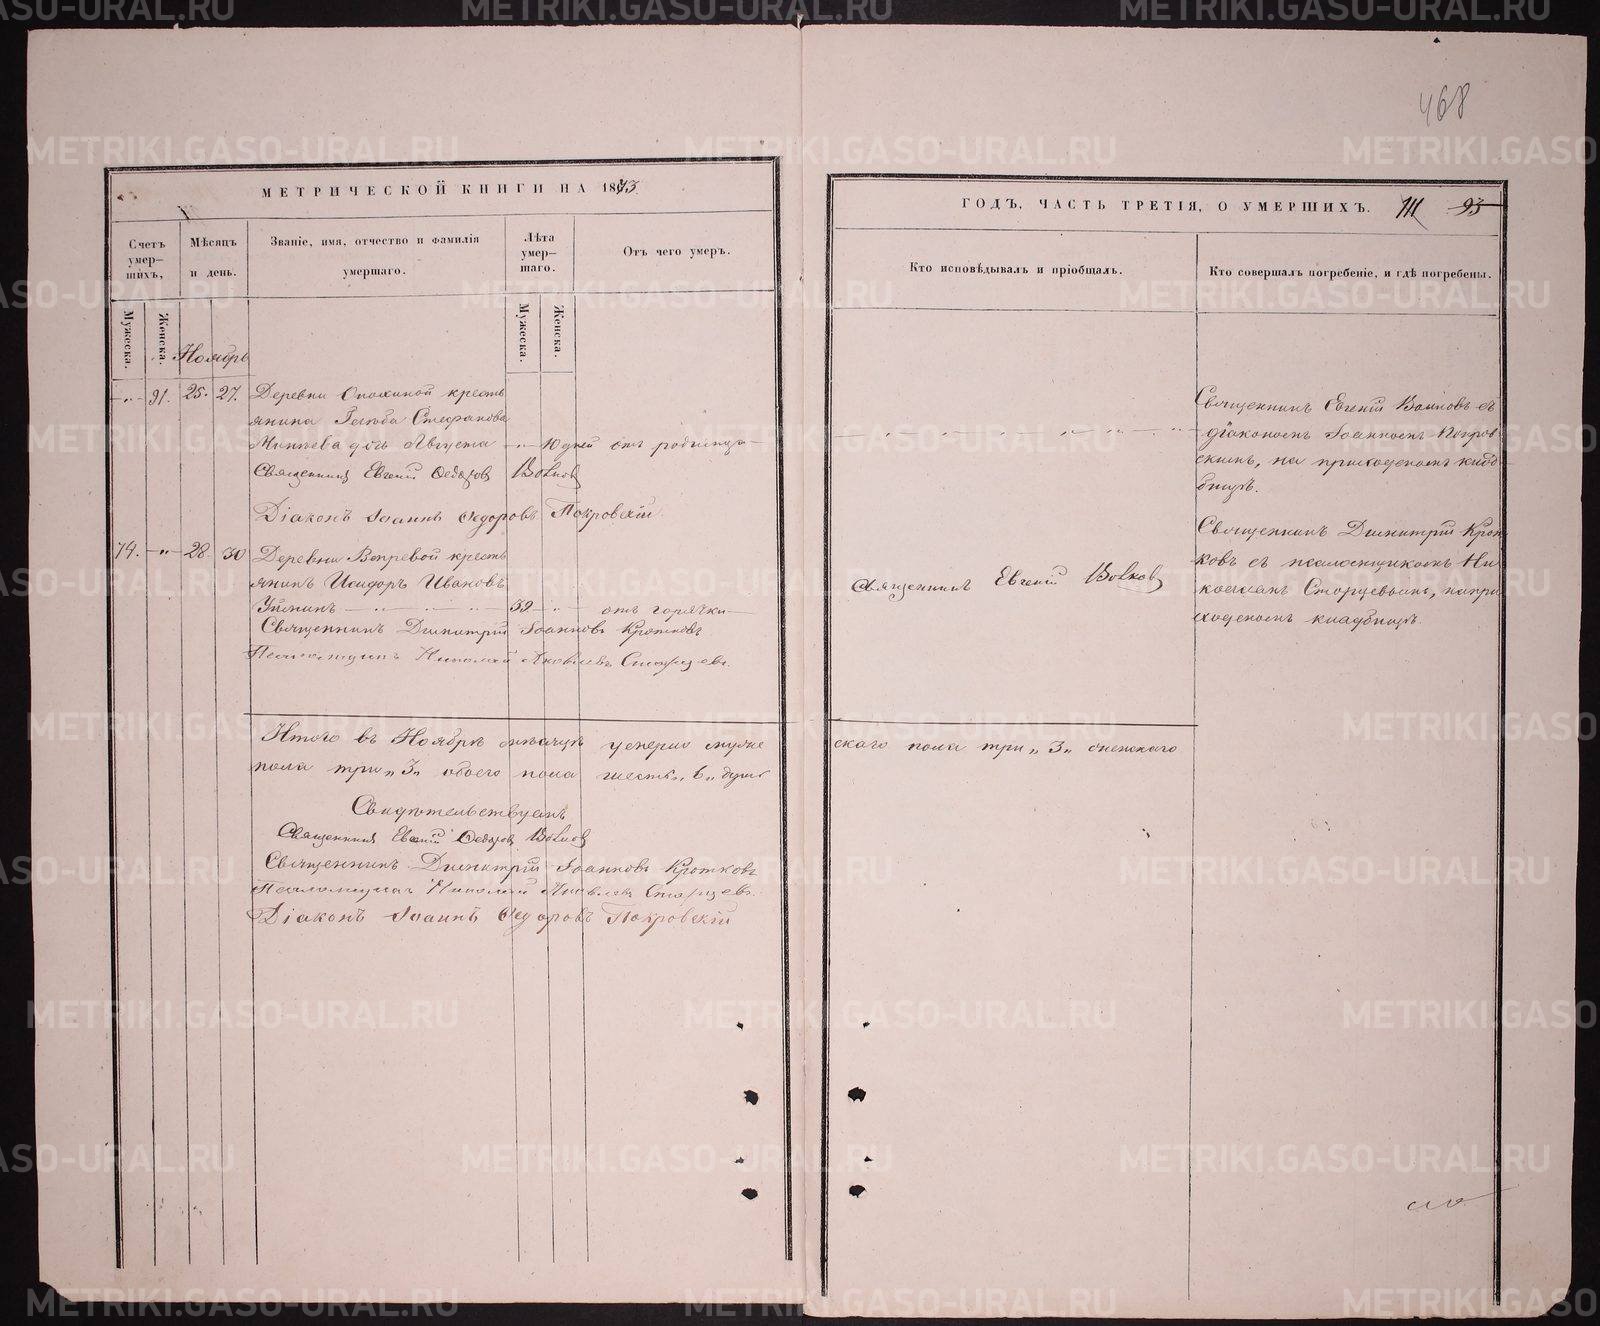 468
МЕТРИЧЕСКОЙ КНИГИ НА 1873.
ГОДЪ, ЧАСТЬ ТРЕТІЯ, О УМЕРШИХЪ. 111 93
Счетъ умер-шихъ,
Мѣсяцъ и день.
Званіе, имя, отчество и фамилія умершаго.
Лѣта умер-шаго.
Отъ чего умеръ.
Кто исповѣдывалъ и пріобщалъ.
Кто совершалъ погребеніе, и гдѣ погребены.
Мужеска.
Женска.
Мужеска.
Женска.
Ноябрь
91. 25. 27. Деревни кресть
янина Глѣба Стефанова
дочь Августа 10 дней отъ родимца
Священникъ Евгеній Ѳедоровъ Волковъ
Діаконъ Іоаннъ Ѳедоровъ Покровскій
Священникъ Евгеній Волковъ съ
діакономъ Іоанномъ Покров
скимъ, на приходскомъ кладб
бищѣ.
74. 28. 30 Деревни кресть
янинъ Исидоръ Ивановъ
39 отъ горячки
Священникъ Димитрій Іоанновъ Кротковъ
Псаломщикъ Николай Яковлевъ
Священникъ Евгеній Волковъ
Священникъ Димитрій Крот
ковъ съ псаломщикомъ Ни
колаемъ на при
ходскомъ кладбищѣ.
Итого въ Ноябрѣ мѣсяцѣ умерло муже
скаго пола три „3„ женскаго
пола три „3„ обоего пола шесть „6„ душъ
Свидѣтельствуемъ
Священникъ Евгеній Ѳедоровъ Волковъ
Священникъ Димитрій Іоанновъ Кротковъ
Псаломщикъ Николай Яковлевъ
Діаконъ Іоаннъ Ѳедоровъ Покровскій
METRIKI.GASO-URAL.RU